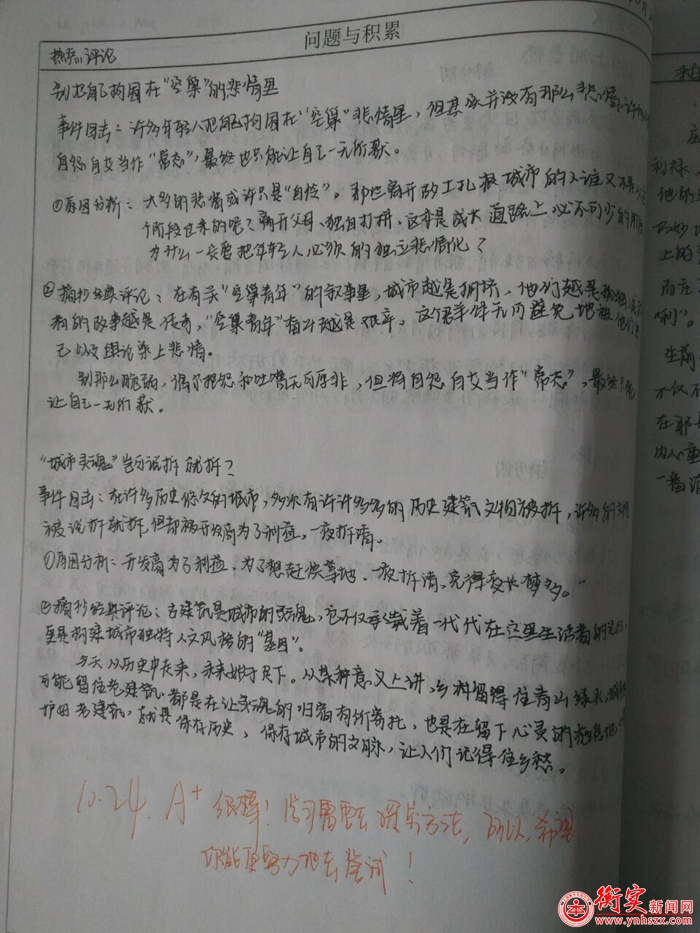 问题与积累
热点评论
别把自己构困在“空巢”的悲情里
事件回击：许多年轻人把自己构困在“空巢”悲情里，但其实并没有那么悲情，许多
自怨自艾当作“常态”，最终也只能让自己一无所获。
①原因分析：大多的悲情或许只是“自怜”。那些离开故土扎根城市的人谁又不是
阶段过来的呢？离开父母、独自打拼、这亦是成长道路上必不可少的
为什么一定要把年轻人必须的独立悲情化？
②摘抄经典评论：在有关“空巢青年”的叙事里，城市越是拥挤，他们越是孤独
的故事越是传奇，“空巢青年”奋斗越是艰辛。这个群体无可避免地被他们自
己以及舆论染上悲情。
别那么脆弱，偶尔抱怨和吐嘈无可厚非，但将自怨自艾当作“常态”，最终只能
让自己一无所获。
“城市灵魂”岂可说拆就拆？
事件回击：在许多历史悠久的城市，多次有许许多多的历史建筑文物被拆，许多的文物
被说拆就拆，但却被开发商为了利益，一夜拆清。
①原因分析：开发商为了利益，为了想赶快落地，一夜拆清，免得夜长梦多。
②摘抄经典评论：古建筑是城市的灵魂，它不仅承载着一代代在这里生活者的
至是构染城市独特人文风格的“基因”。
今天从历史中走来，未来始于足下。从某种意义上讲，乡村留得住青山绿水，城市
可能留住老建筑，都是在让灵魂的归宿有所寄托，也是在留下心灵的栖息地
护好老建筑，就是保存历史、保存城市的文脉，让人们记得住乡愁。
10.24. A⁺ 很棒！学习需要去探索方法，所以，希望
你能更努力地去尝试！
衡实新闻网
www.ynhszx.com